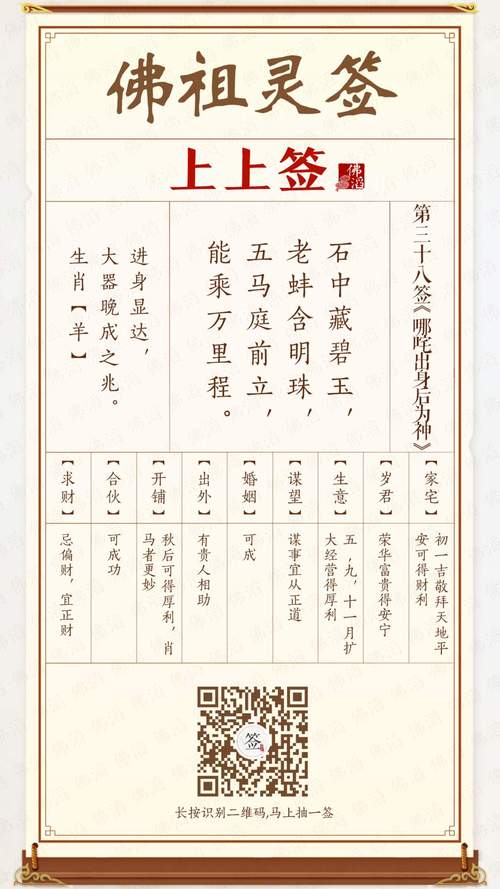 佛祖灵签
上上签
佛滔
第三十八签《哪咤出身后为神》
石中藏碧玉，
老蚌含明珠，
五马庭前立，
能乘万里程。
进身显达，
大器晚成之兆。
生肖【羊】
【家宅】
初一吉敬拜天地平
安可得财利
【岁君】
荣华富贵得安宁
【生意】
五，九，十一月扩
大经营得厚利
【谋望】
谋事宜从正道
【婚姻】
可成
【出外】
有贵人相助
【开铺】
秋后可得厚利，肖
马者更妙
【合伙】
可成功
【求财】
忌偏财，宜正财
签
长按识别二维码,马上抽一签